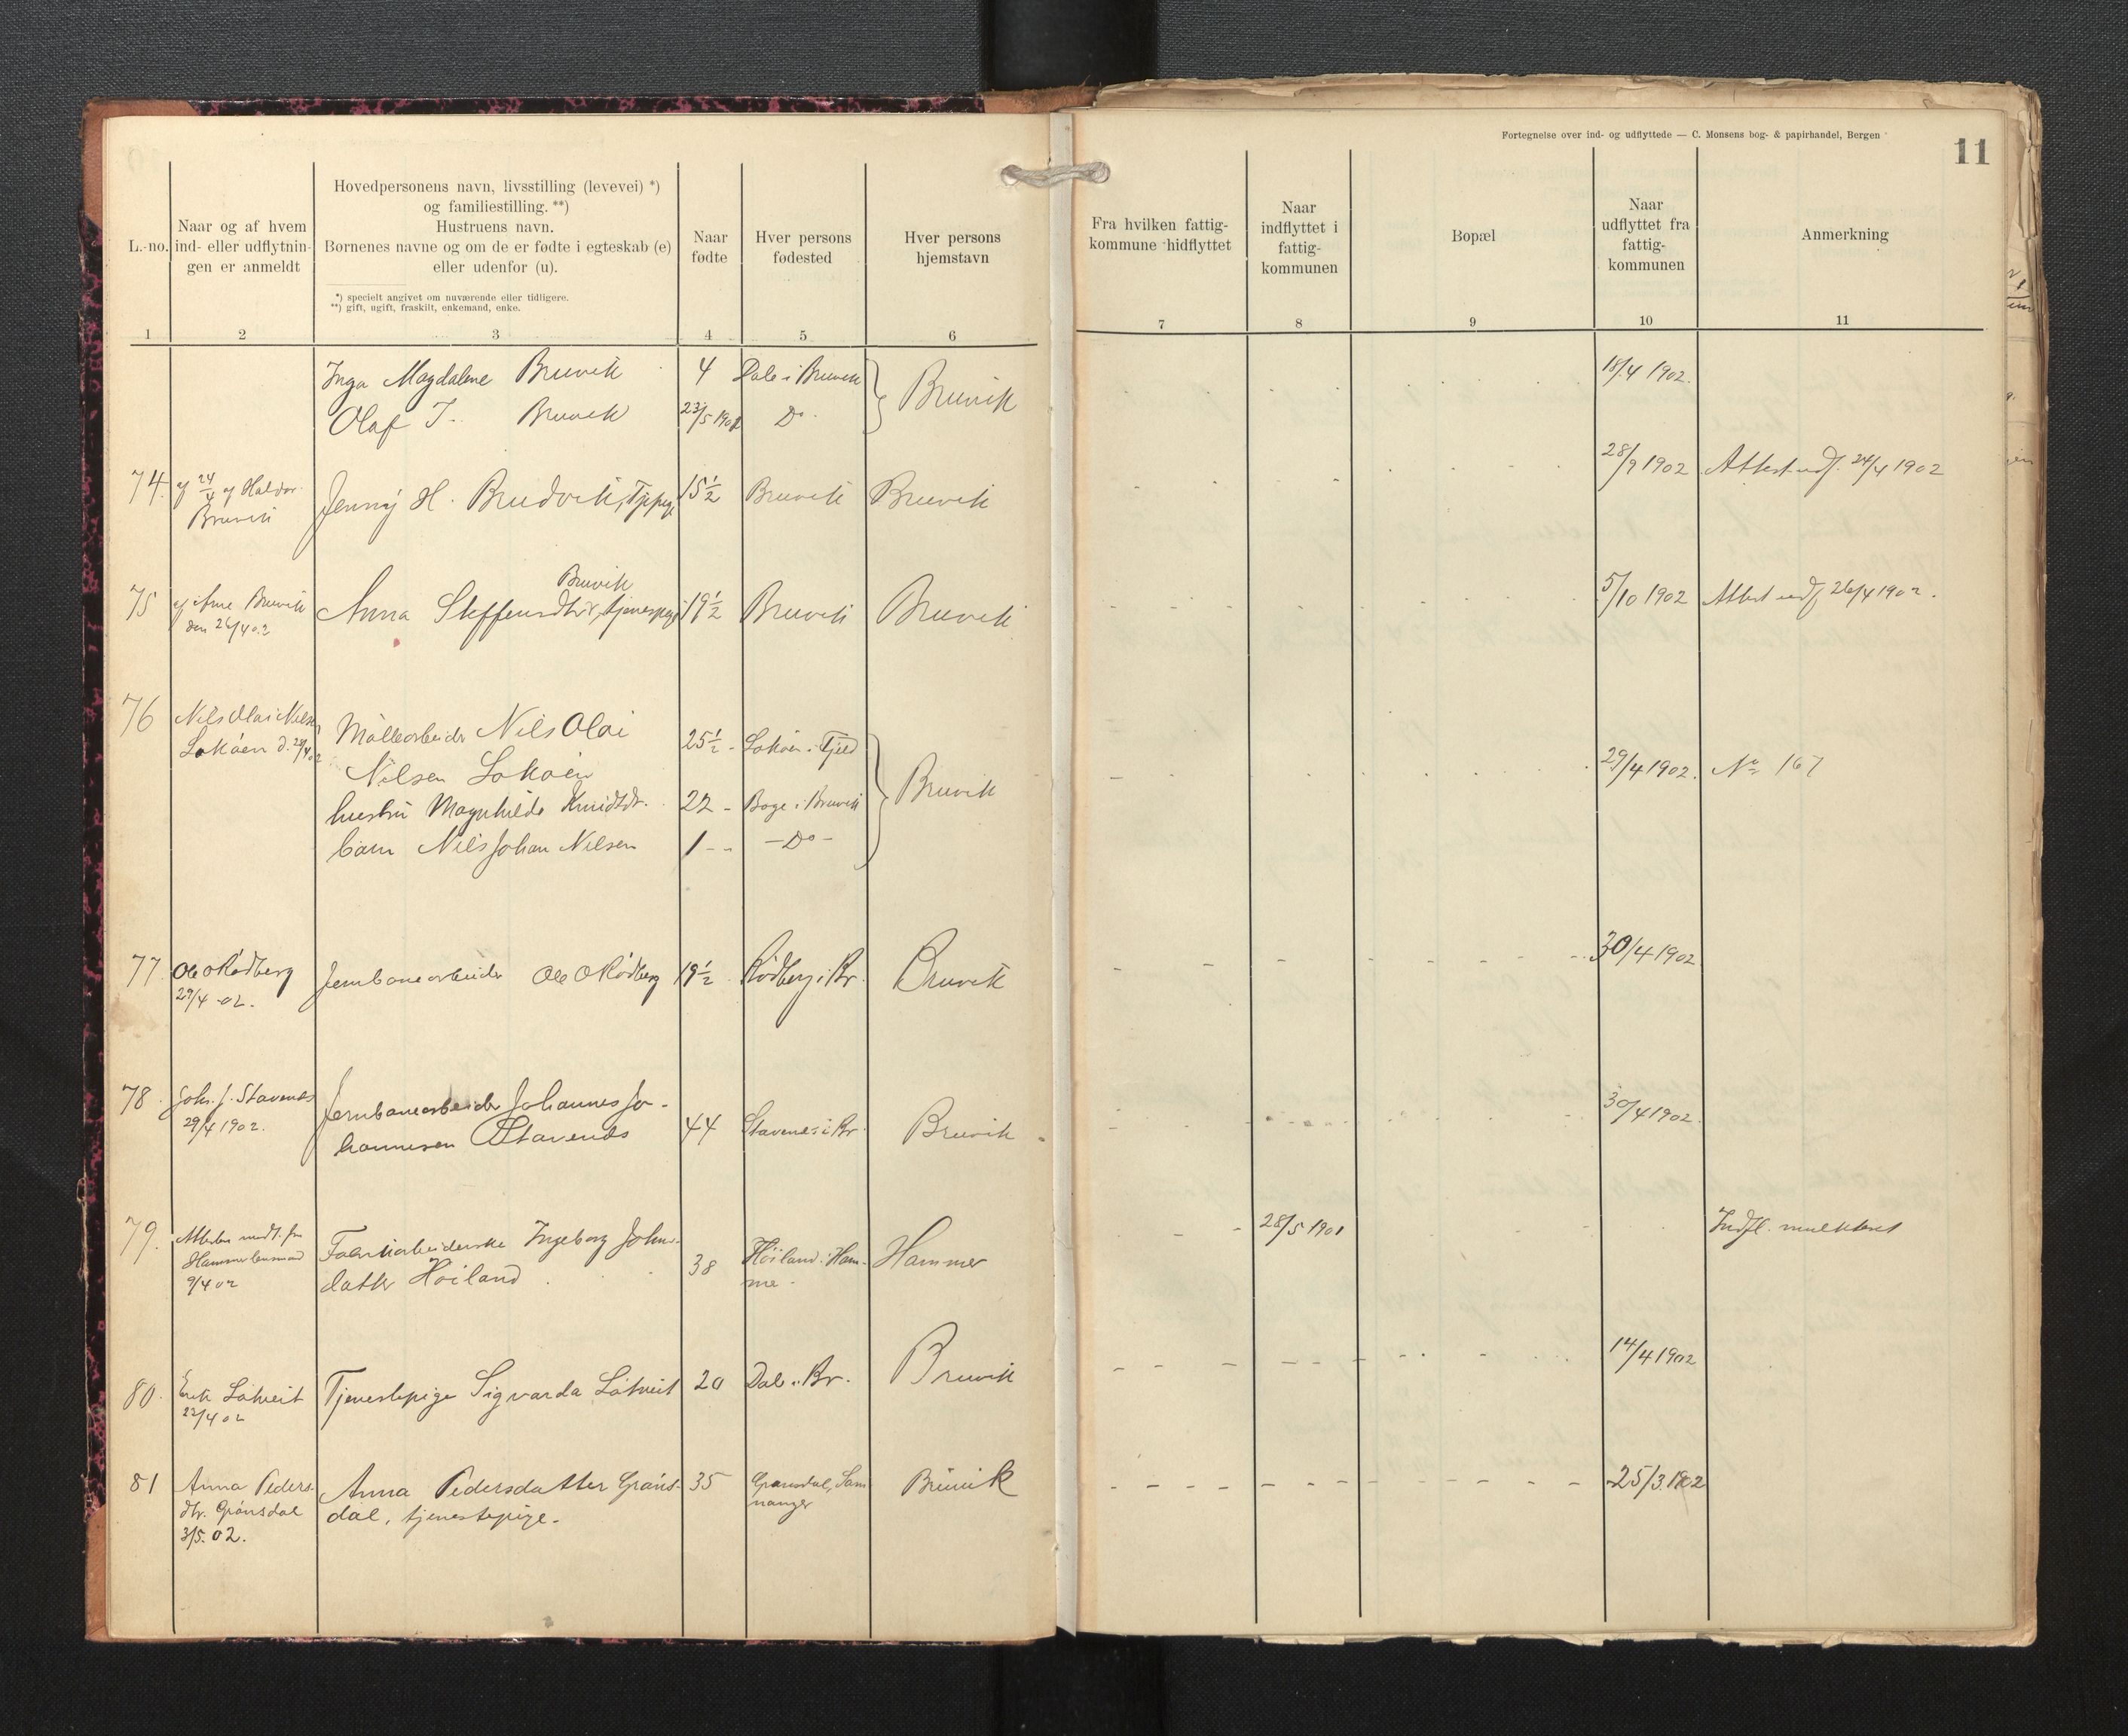 Fortegnelse over ind- og udflyttede — C. Monsens bog- & papirhandel, Bergen
11
L.-no.
Naar og af hvem
ind- eller udflytnin-
gen er anmeldt
Hovedpersonens navn, livsstilling (levevei) *)
og familiestilling. **)
Hustruens navn.
Børnenes navne og om de er fødte i egteskab (e)
eller udenfor (u).
*) specielt angivet om nuværende eller tidligere.
**) gift, ugift, fraskilt, enkemand, enke.
Naar
fødte
Hver persons
fødested
Hver persons
hjemstavn
Fra hvilken fattig-
kommune hidflyttet
Naar
indflyttet i
fattig-
kommunen
Bopæl
Naar
udflyttet fra
fattig-
kommunen
Anmerkning
1 2 3 4 5 6 7 8 9 10 11
Inga Magdalene Bruvik 4 Dale i Bruvik Bruvik 18/4 1902.
Olaf J. Bruvik 23/5 1901 Do
74. af 24/4 af Haldor Jenny H. Brudvik, Tjpige 15½ Bruvik Bruvik 28/9 1902 Attest udf. 24/4 1902
Bruvik
Bruvik
75 af Arne Bruvik Anna Steffensdtr, tjenespige 19½ Bruvik Bruvik 5/10 1902 Attest udf 26/4 1902.
den 26/4 02
76 Nils Olai Nilsen Mølleorbeider Nils Olai 25½ - Lokøen i Fjeld Bruvik 29/4 1902. No 167
Lokøen d. 29/4 02 Nilsen Lokøen
hustru Magnhilde Knudsdtr. 22 - Boge i Bruvik
barn Nils Johan Nilsen 1 - - - Do -
77 Ole O Rødberg Jernbanearbeider Ole O Rødberg 19½ Rødberg i Br. Bruvik 30/4 1902
29/4 -02.
78. Johs. J. Stavenes Jernbanearbeider Johannes Jo- 44 Stavenes i Br. Bruvik 30/4 1902.
29/4 1902. hannesen Stavenes
79. Attesten medt. fra Fabrikarbeiderske Ingeborg Johns- 38 Høiland i Ham- Hammer 28/5 1901 Indfl. mulkteret
Hammer lensmand datter Høiland me -
9/4 02
80. Erik Låtveit Tjenestepige Sigvarda Låtveit 20 Dale i Br. Bruvik 14/4 1902
22/4 02
81 Anna Peders- Anna Pedersdatter Grøns- 35 Grønsdal, Sam Bruvik 25/3. 1902
dtr. Grønsdal dal, tjenestepige. nanger
3/5. 02.